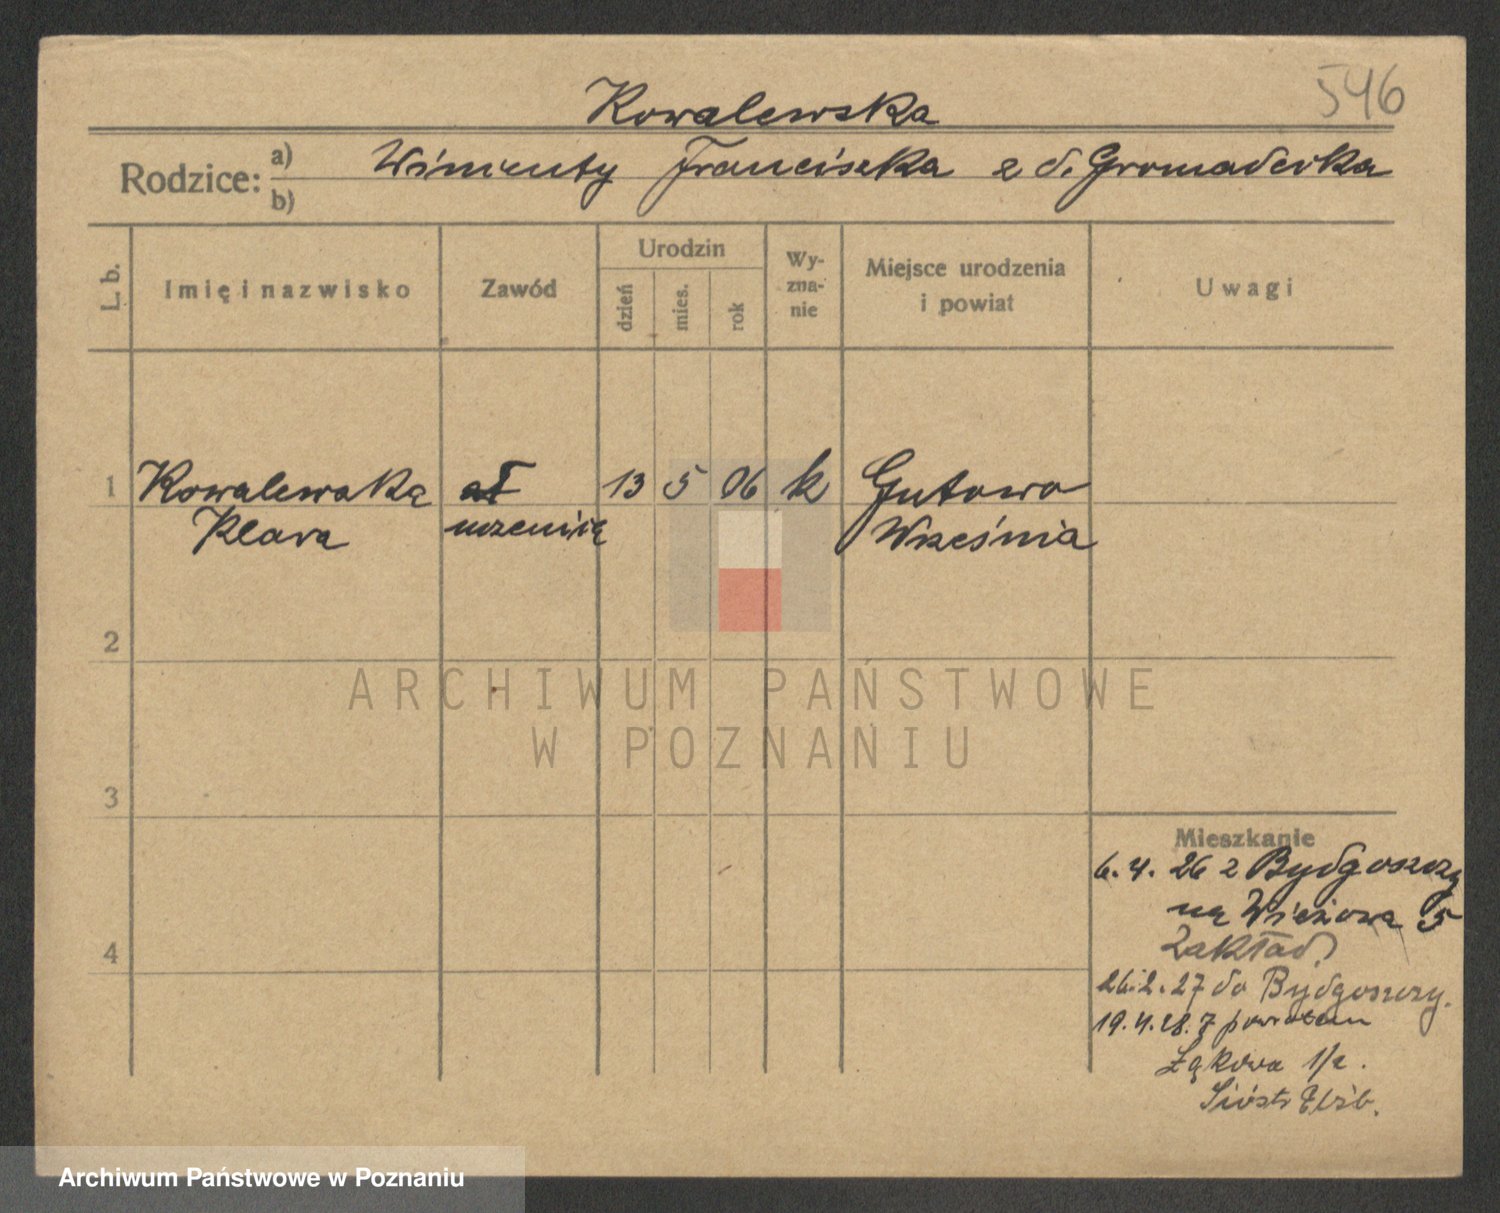 546
Kowalewska
Rodzice: a) Wincenty Franciszka z d. Gromadecka
b)
L. b. Imię i nazwisko Zawód Urodzin dzień mies. rok Wy-zna-nie Miejsce urodzenia i powiat Uwagi
1 Kowalewska 13 5 06 k Gutowo
Klara uczenica Września
2
ARCHIWUM PAŃSTWOWE
W POZNANIU
3
Mieszkanie
6.4.26 z Bydgoszczy
na Wieżowa 5
4
Zakład.
26.2.27 do Bydgoszczy.
19.4.28. z powrotem
Łąkowa 1/2.
Sióstr Elżb.
Archiwum Państwowe w Poznaniu